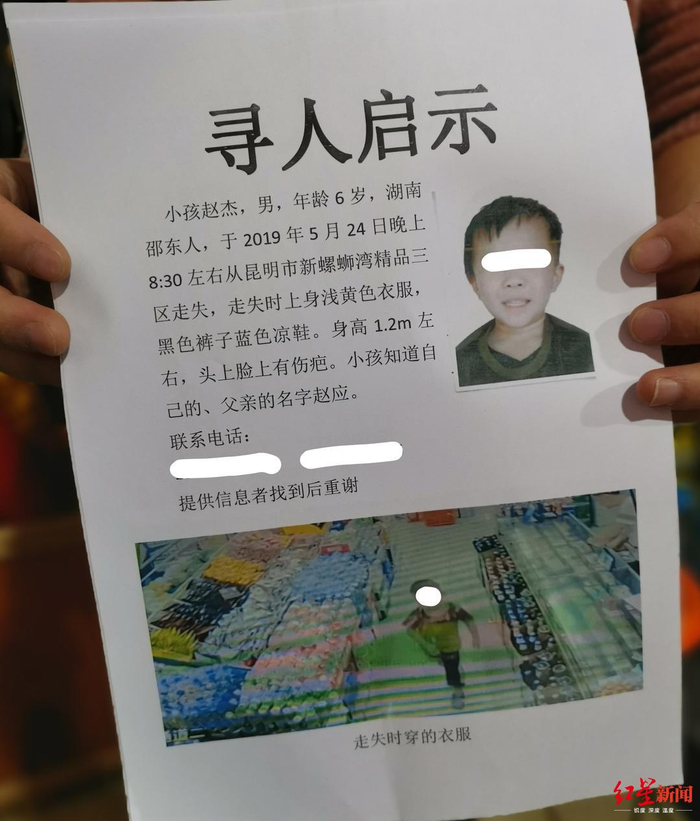 寻人启示
小孩赵杰，男，年龄 6 岁，湖南
邵东人，于 2019 年 5 月 24 日晚上
8:30 左右从昆明市新螺蛳湾精品三
区走失，走失时上身浅黄色衣服，
黑色裤子蓝色凉鞋。身高 1.2m 左
右，头上脸上有伤疤。小孩知道自
己的、父亲的名字赵应。
联系电话：
提供信息者找到后重谢
走失时穿的衣服
红星新闻
锐度 深度 温度